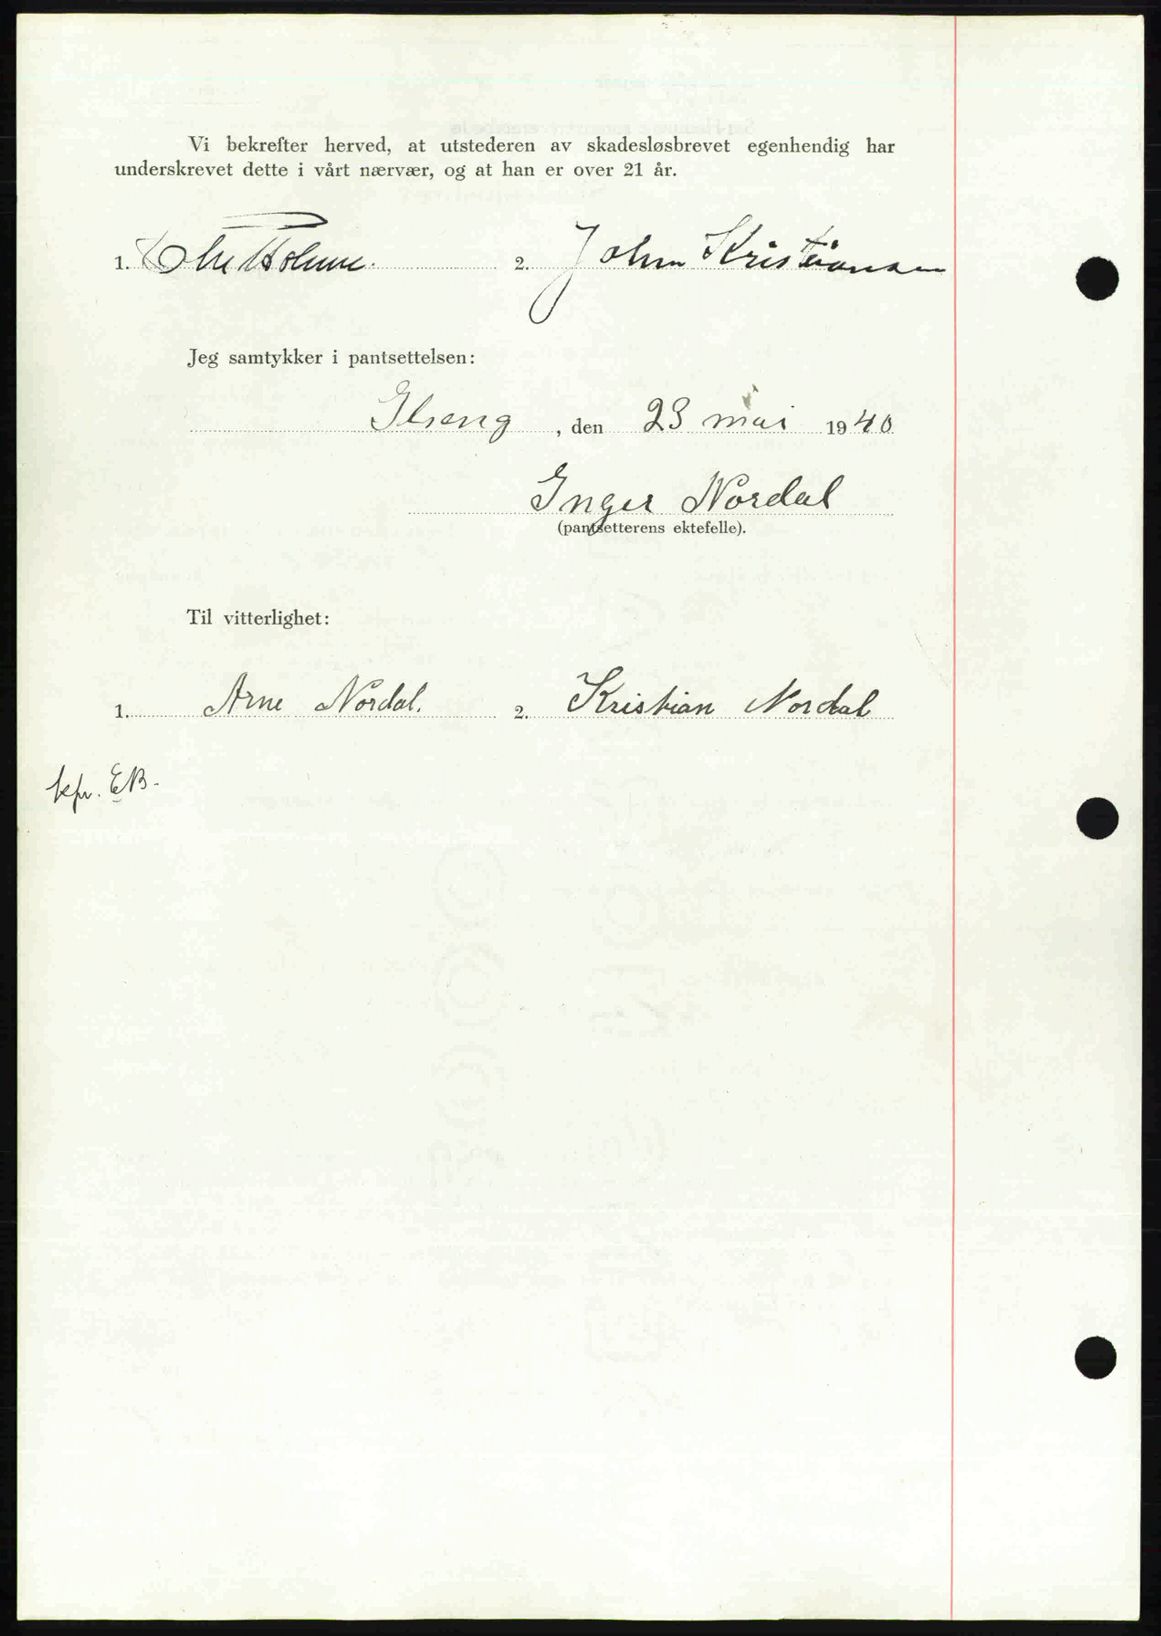 Vi bekrefter herved, at utstederen av skadesløsbrevet egenhendig har
underskrevet dette i vårt nærvær, og at han er over 21 år.
1. Ole Holme. 2. Johan Kristiansen
Jeg samtykker i pantsettelsen:
Ilseng, den 23 mai 1940
Inger Nordal
(pantsetterens ektefelle).
Til vitterlighet:
1. Arne Nordal. 2. Kristian Nordal
kfr. EB.